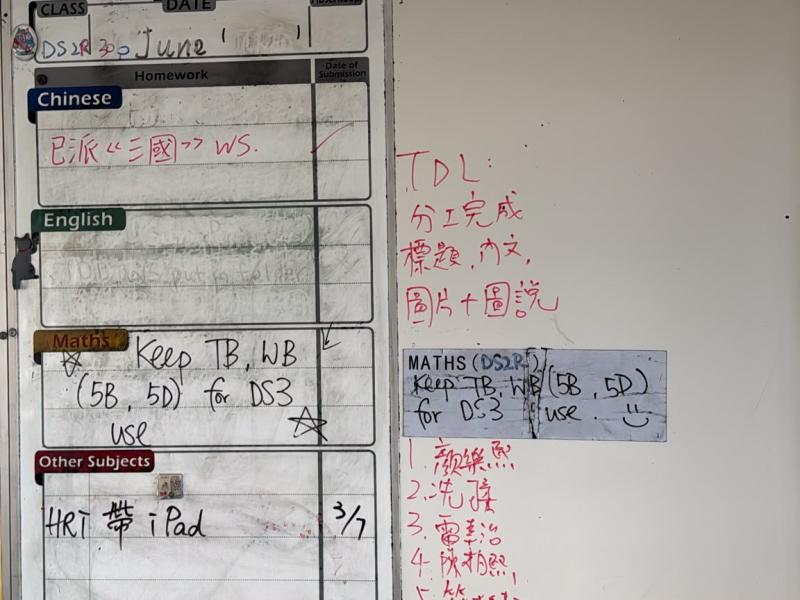 CLASS DATE
DS2R 30 June ( )
Homework Date of Submission
Chinese
已派《三國》WS.
English
Maths
Keep TB, WB
(5B, 5D) for DS3
use
Other Subjects
HRT 帶 iPad 3/7
TDL:
分工完成
標題, 內文,
圖片+圖說
MATHS (DS2R)
Keep TB, WB (5B, 5D)
for DS3 use.
1. 顏樂熙
2. 冼
3. 雷
4. 陳
5.